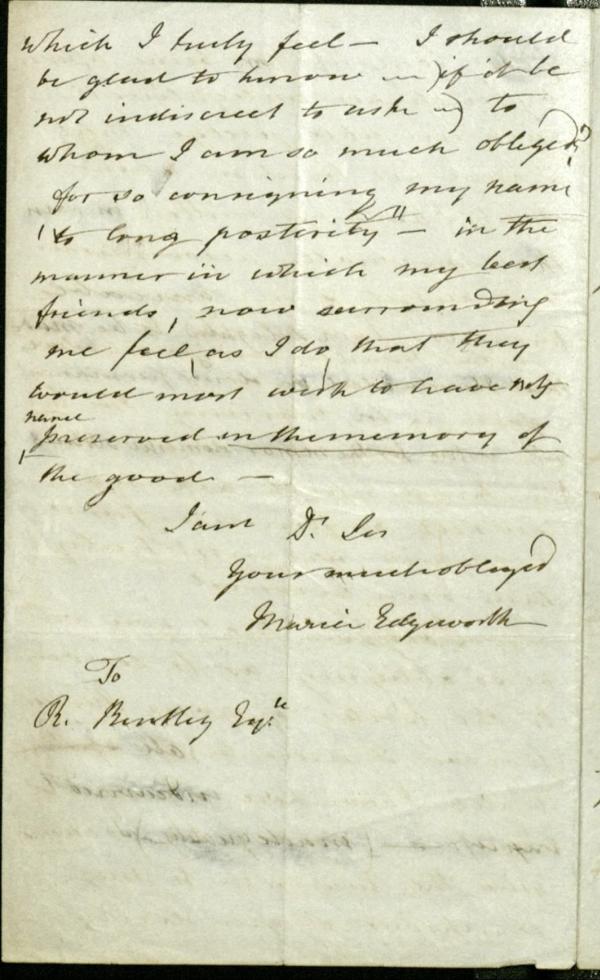 which I truly feel — I should
be glad to know (if it be
not indiscreet to ask) to
whom I am so much obliged
for so consigning my name
"to long posterity" — in the
manner in which my best
friends, now surrounding
me feel, as I do, that they
would most wish to have my
name
preserved in the memory of
the good —
I am Dr. Sir
Your much obliged
Maria Edgeworth
To
R. Bentley Esqre